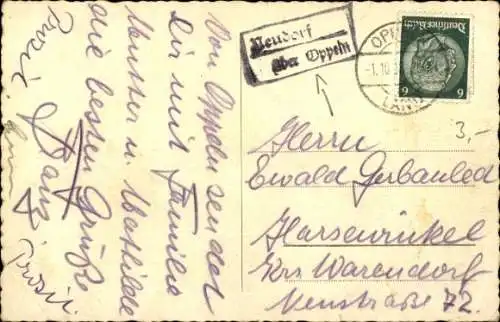 Von Oppeln sendet
Dir mit Familie
Mutter u. Mathilde
die besten Grüße
Franz
Prosit
Prosit
Neudorf
über Oppeln
OPPELN
-1.10.
LAND
Deutsches Reich
6 6
3,-
Herrn
Ewald Gerbauled
Harsewinkel
Krs Warendorf
Neustraße 72.